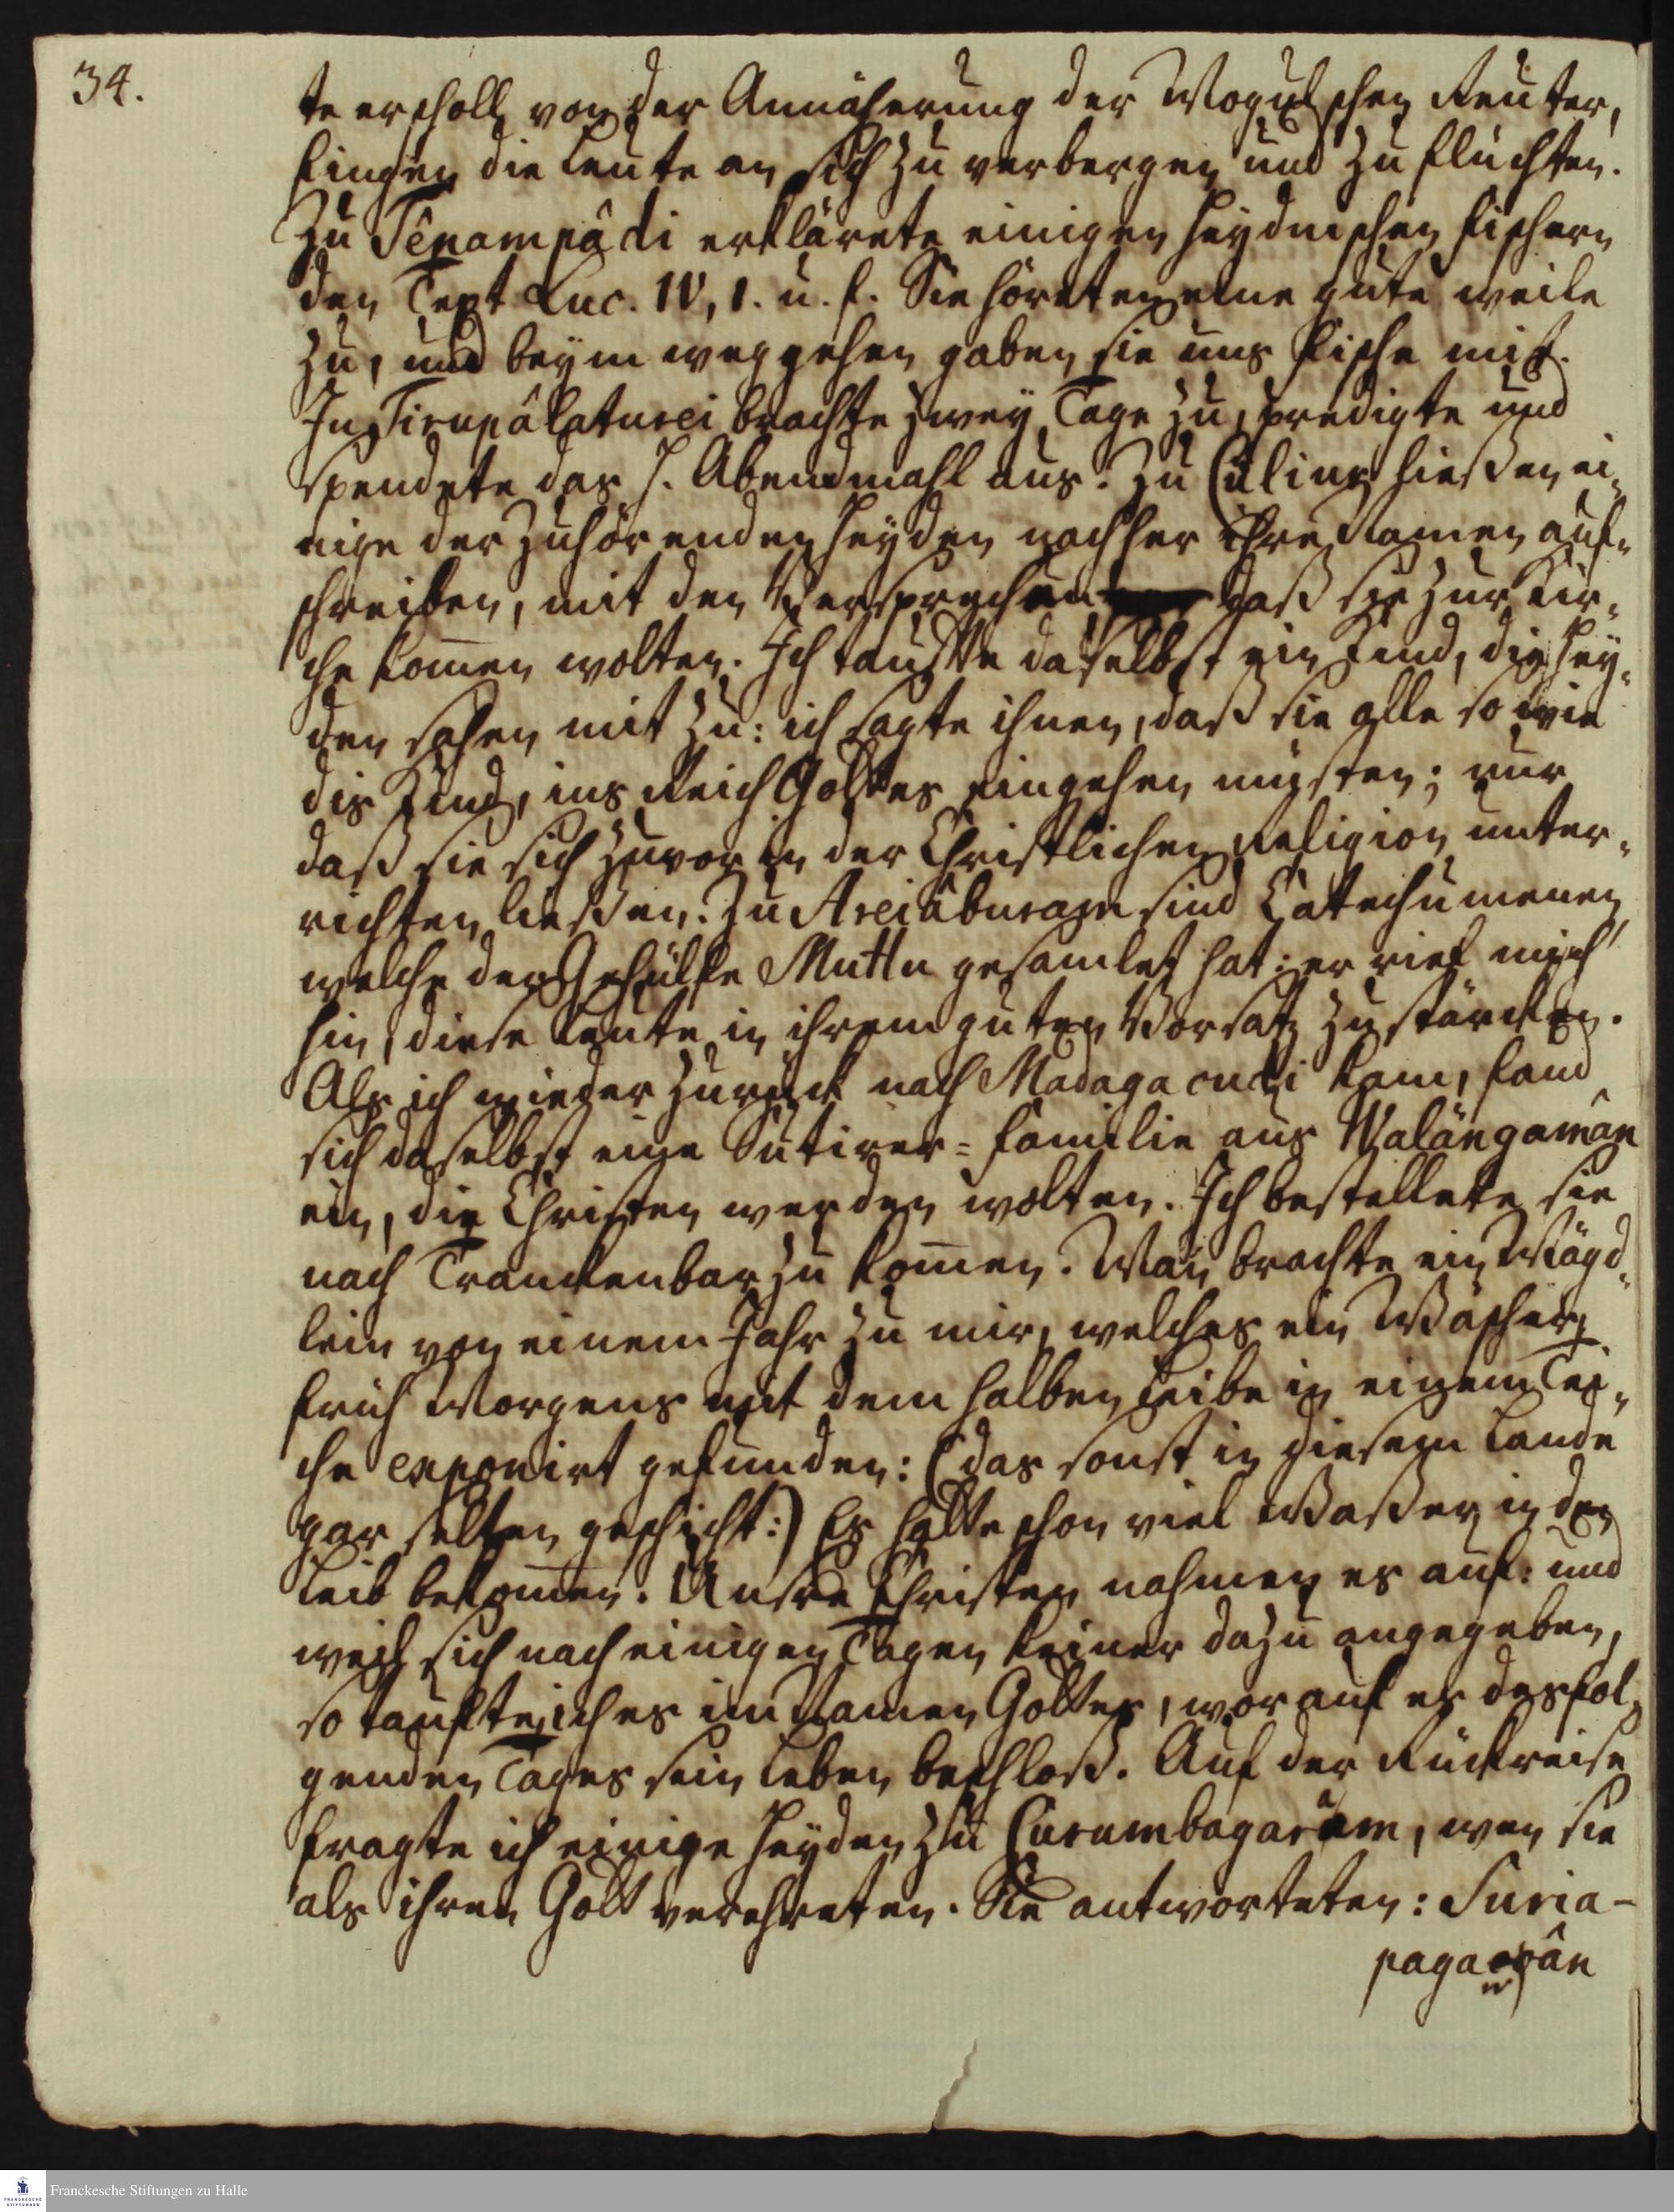 34.
te erscholl von der Annäherung der Mogulschen Reuter,
fingen die Leute an sich zu verbergen und zu flüchten.
Zu Tênampâdi erklärete einigen heydnischen Fischern
den Text Luc. IV, 1. u. f. Sie höreten eine gute weile
zu, und beym weggehen gaben sie uns Fische mit.
In Tirupâlaturei brachte zwey Tage zu, predigte und
spendete das H. Abendmahl aus. Zu Culiur ließen ei-
nige der Zuhörenden Heyden nachher ihre Namen auf-
schreiben, mit den Versprechen daß sie zur Kir-
che kom̄en wolten. Ich tauffte daselbst ein Kind, die Hey-
den sahen mit zu: ich sagte ihnen, daß sie alle so wie
dis Kind, ins Reich Gottes eingehen müsten; nur
daß sie sich zuvor in der Christlichen Religion unter-
richten ließen. Zu Areiâburam sind Catechumenen
welche der Gehülfe Muttu gesamlet hat: er rief mich
hin, diese Leute in ihrem guten Vorsatz zu stärcken.
Als ich wieder zurück nach Madagacudi kam, fand
sich daselbst eine Sutirer-Familie aus Walängamân
ein, die Christen werden wolten. Ich bestellete sie
nach Tranckenbar zu kom̄en. Man brachte ein Mägd-
lein von einem Jahr zu mir, welches ein Wäscher
früh Morgens mit dem halben Leibe in einem Tei-
che exponirt gefunden: (das sonst in diesem Lande
gar selten geschicht:) Es hatte schon viel Waßer in den
Leib bekom̄en. Unsre Christen nahmen es auf: und
weil sich nach einigen Tagen keiner dazu angegeben,
so taufte ich es im Namen Gottes, worauf es des fol-
genden Tages sein Leben beschloß. Auf der Rückreise
fragte ich einige Heyden zu Curumbagaram, wen sie
als ihren Gott verehreten. Sie antworteten: Suria-
Franckesche Stiftungen zu Halle